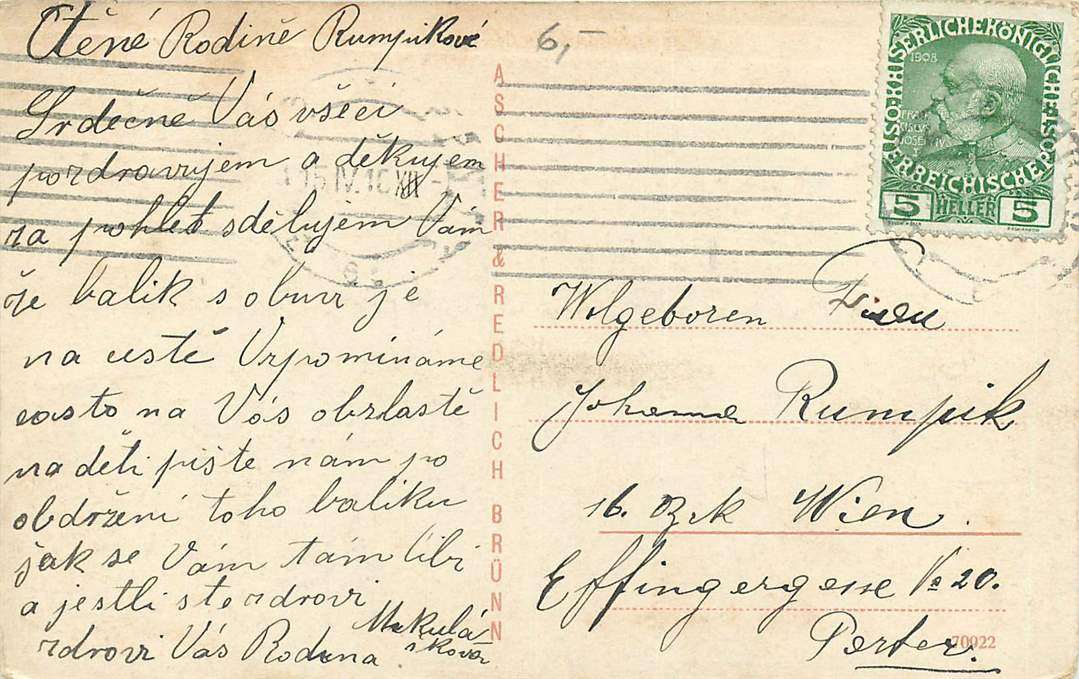 Ctěné Rodině Rumpikové
6,-
Srdečně Vás všeci
pozdravujem a děkujem
za pohled sdělujem Vám
že balik s obuvi je
na cestě Vzpomínáme
casto na Vás obzlastě
na děti pište nám po
obdržení toho baliku
jak se Vám tam líbí
a jestli ste zdrovi
zdrovi Vás Rodina Mikulá
škova
ASCHER & REDLICH BRÜNN
15.IV.1
XIII
KAISERLICHEKÖNIGLICHE
ÖSTERREICHISCHE POST
1908
FRANZ
JOSEF I
5 HELLER 5
Wolgeboren
Johanna Rumpik
16. Bzk Wien.
Effingergasse No 20.
70922